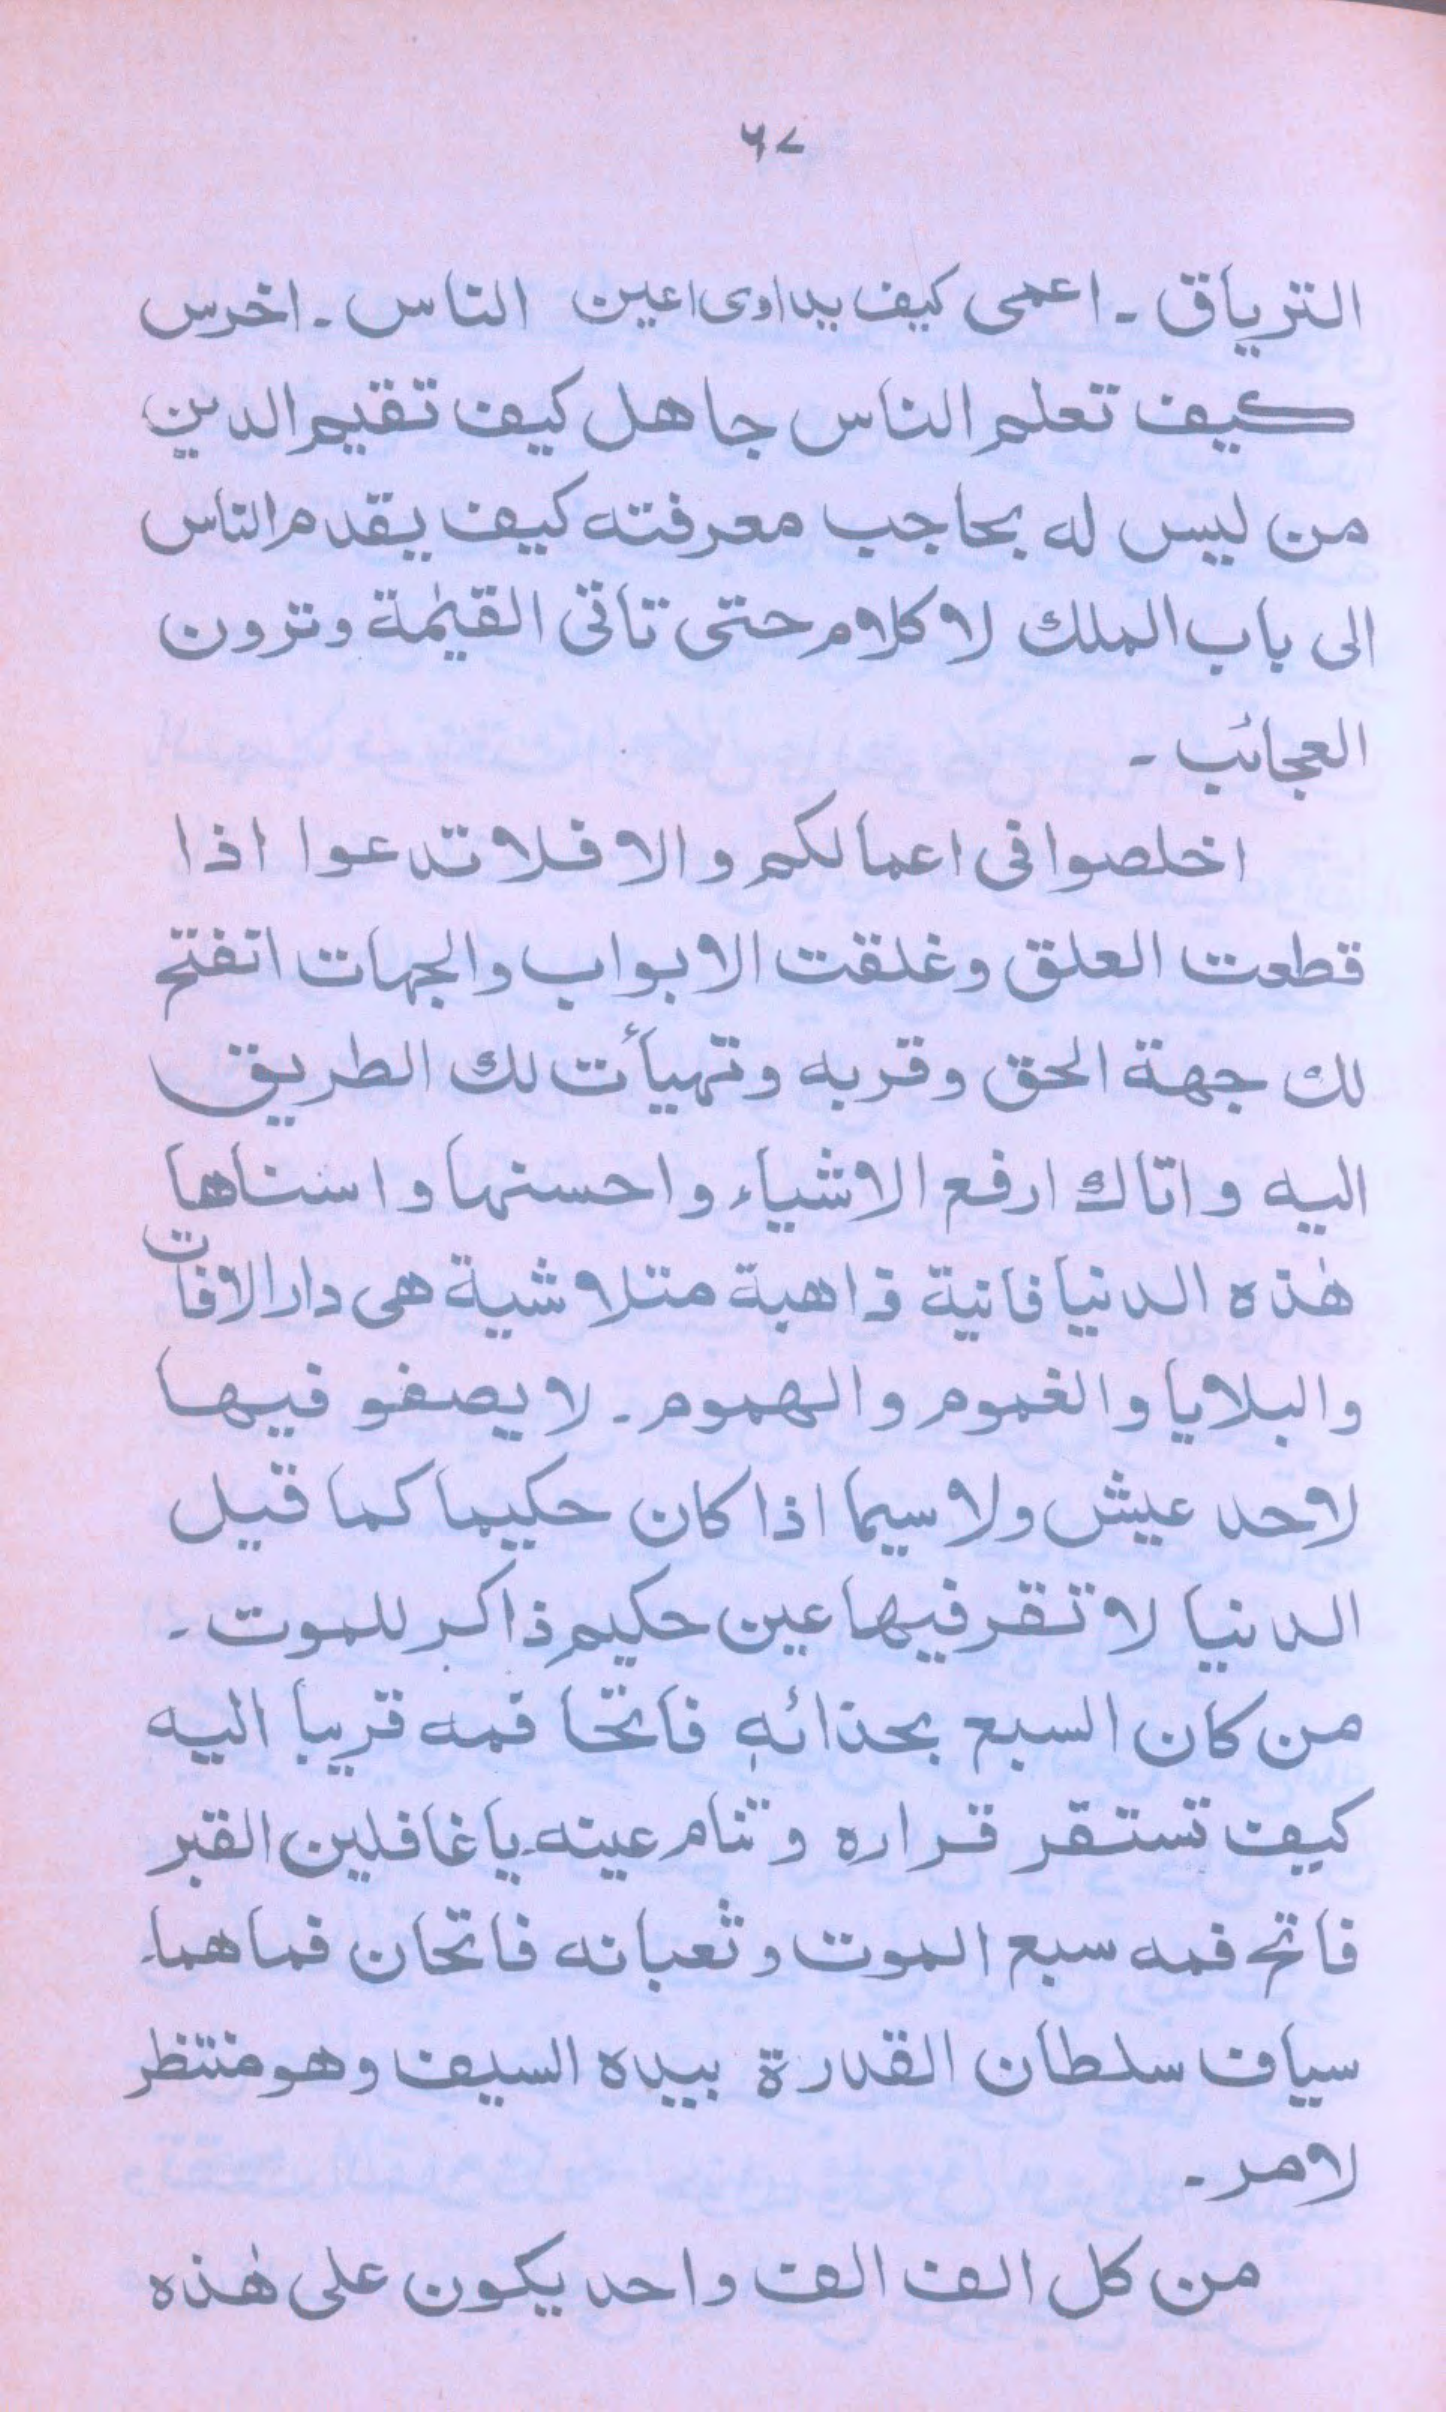 ٦٧
الترياق ـ اعمى كيف يداوى اعين الناس ـ اخرس
كيف تعلم الناس جاهل كيف تقيم الدين
من ليس له بحاجب معرفته كيف يقدم الناس
الى باب الملك لا كلام حتى تأتى القيٰمة وترون
العجائب ـ
اخلصوا فى اعمالكم والا فلا تدعوا اذا
قطعت العلق وغلقت الابواب والجهات انفتح
لك جهة الحق وقربه وتهيأت لك الطريق
اليه واتاك ارفع الاشياء واحسنها واسناها
هٰذه الدنيا فانية ذاهبة متلاشية هى دار الافات
والبلايا والغموم والهموم ـ لا يصفو فيها
لاحد عيش ولا سيما اذا كان حكيما كما قيل
الدنيا لا تقر فيها عين حكيم ذاكر للموت ـ
من كان السبع بحذائه فاتحا فمه قريبا اليه
كيف تستقر قراره وتنام عينه ـ يا غافلين القبر
فاتح فمه سبع الموت وثعبانه فاتحان فماهما ـ
سياف سلطان القدرة بيده السيف وهو منتظر
لامر ـ
من كل الف الف واحد يكون على هٰذه